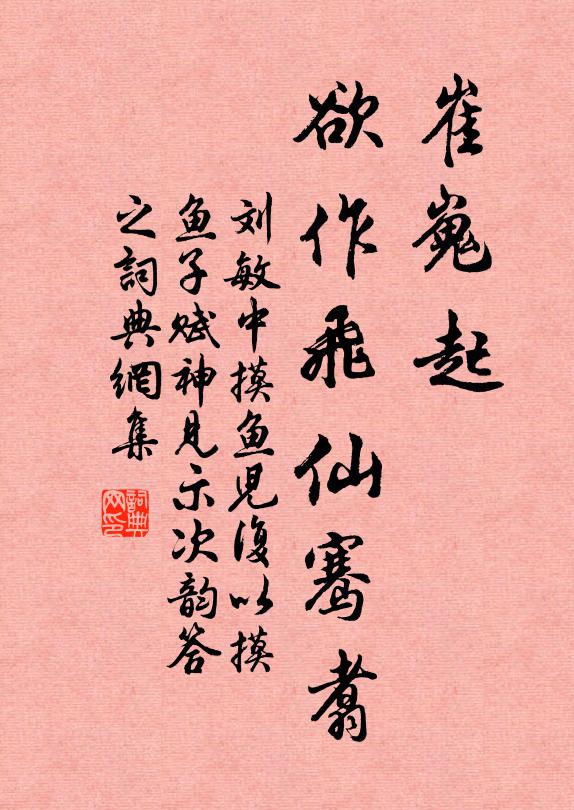 崔嵬起
欲作飛仙騫翥
刘敏中摸鱼児復以摸
鱼子赋神見示次韵答
之詞典網集
詞典
网印